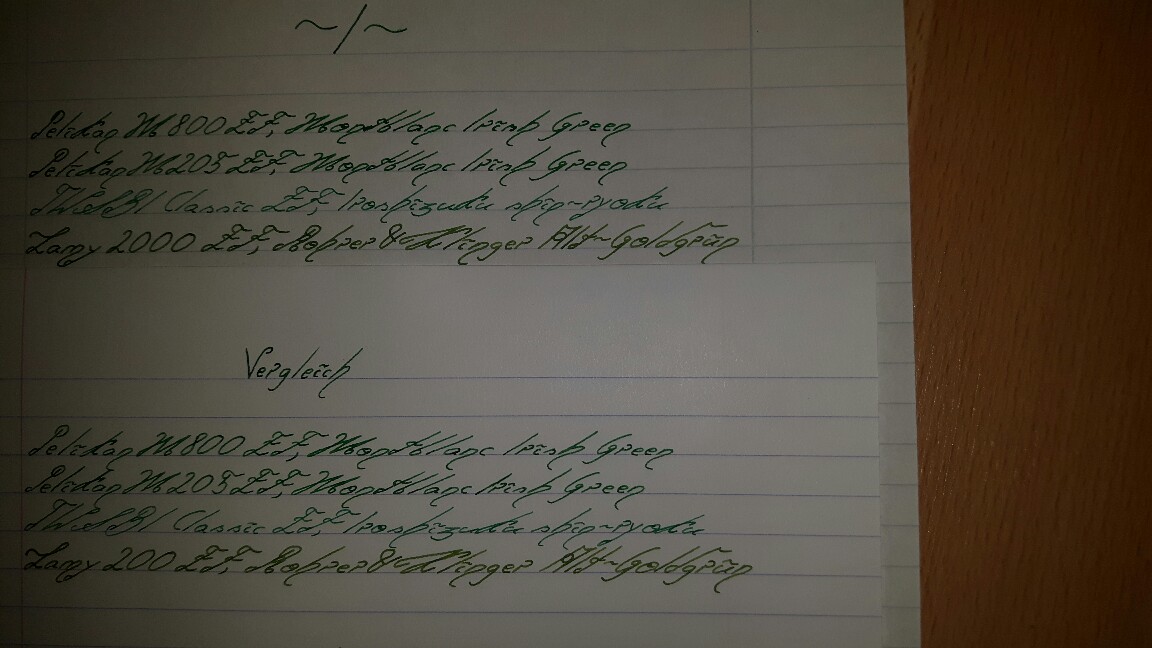 ~/~
Pelikan M800 EF, Montblanc Irish Green
Pelikan M205 EF, Montblanc Irish Green
TWSBI Classic EF, Iroshizuku shin-ryoku
Lamy 2000 EF, Rohrer & Klinger Alt-Goldgrün
Vergleich
Pelikan M800 EF, Montblanc Irish Green
Pelikan M205 EF, Montblanc Irish Green
TWSBI Classic EF, Iroshizuku shin-ryoku
Lamy 200 EF, Rohrer & Klinger Alt-Goldgrün